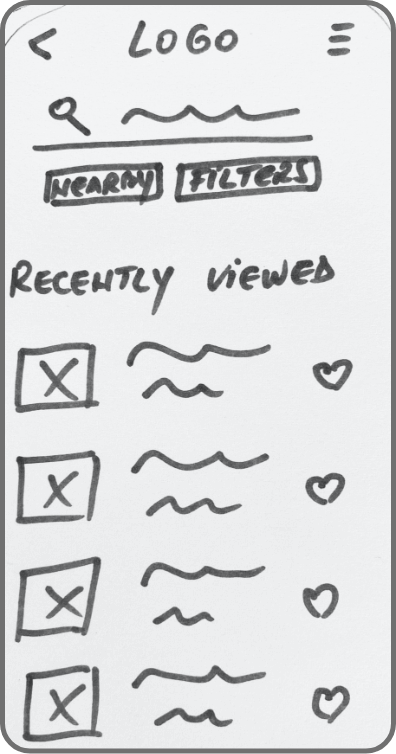 < LOGO
NEARBY FILTERS
RECENTLY VIEWED